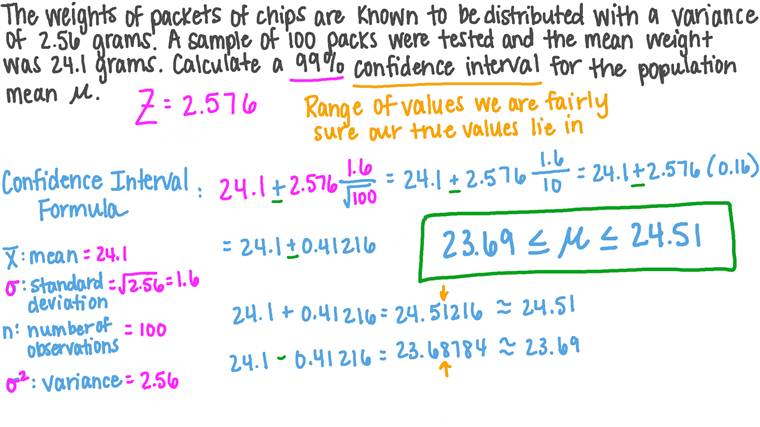 The weights of packets of chips are known to be distributed with a variance
of 2.56 grams. A sample of 100 packs were tested and the mean weight
was 24.1 grams. Calculate a 99% confidence interval for the population
mean μ.
Z = 2.576
Range of values we are fairly
sure our true values lie in
Confidence Interval
Formula
: 24.1 ± 2.576 1.6/√100 = 24.1 ± 2.576 1.6/10 = 24.1 ± 2.576 (0.16)
= 24.1 ± 0.41216
23.69 ≤ μ ≤ 24.51
x̅: mean = 24.1
σ: standard = √2.56 = 1.6
deviation
n: number of = 100
observations
σ²: variance = 2.56
24.1 + 0.41216 = 24.51216 ≈ 24.51
24.1 - 0.41216 = 23.68784 ≈ 23.69